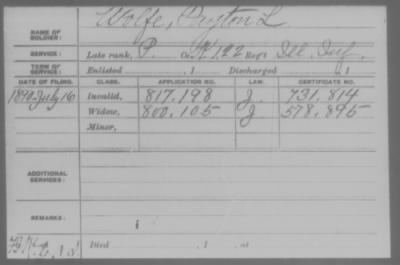 Wolfe, Payton L.
NAME OF SOLDIER:
SERVICE: Late rank, P. Co. K, 122 Reg't Ill. Inf.
TERM OF SERVICE: Enlisted , 1 Discharged , 1
DATE OF FILING. CLASS. APPLICATION NO. LAW. CERTIFICATE NO.
1890 July 16 Invalid, 817.198 J. 731.814
Widow, 800.105 J 578.895
Minor,
ADDITIONAL SERVICES:
REMARKS:
Died , 1 , at